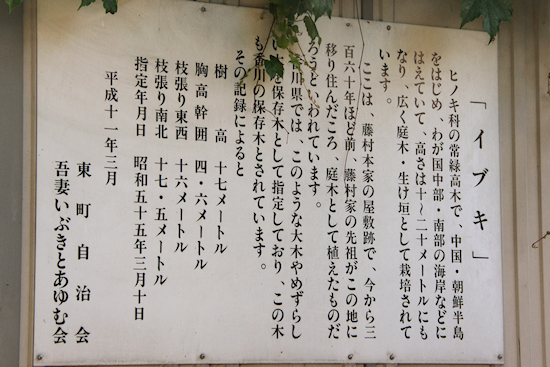 「イブキ」
ヒノキ科の常緑高木で、中国・朝鮮半島
をはじめ、わが国中部・南部の海岸などに
はえていて、高さは十~二十メートルにも
なり、広く庭木・生け垣として栽培されて
います。
ここは、藤村本家の屋敷跡で、今から三
百六十年ほど前、藤村家の先祖がこの地に
移り住んだころ、庭木として植えたものだ
ろうといわれています。
川県では、このような大木やめずらし
い を保存木として指定しており、この木
も香川の保存木とされています。
その記録によると
樹高 十七メートル
胸高幹囲 四・六メートル
枝張り東西 十六メートル
枝張り南北 十七・五メートル
指定年月日 昭和五十五年三月十日
平成十一年三月
東町自治会
吾妻いぶきとあゆむ会